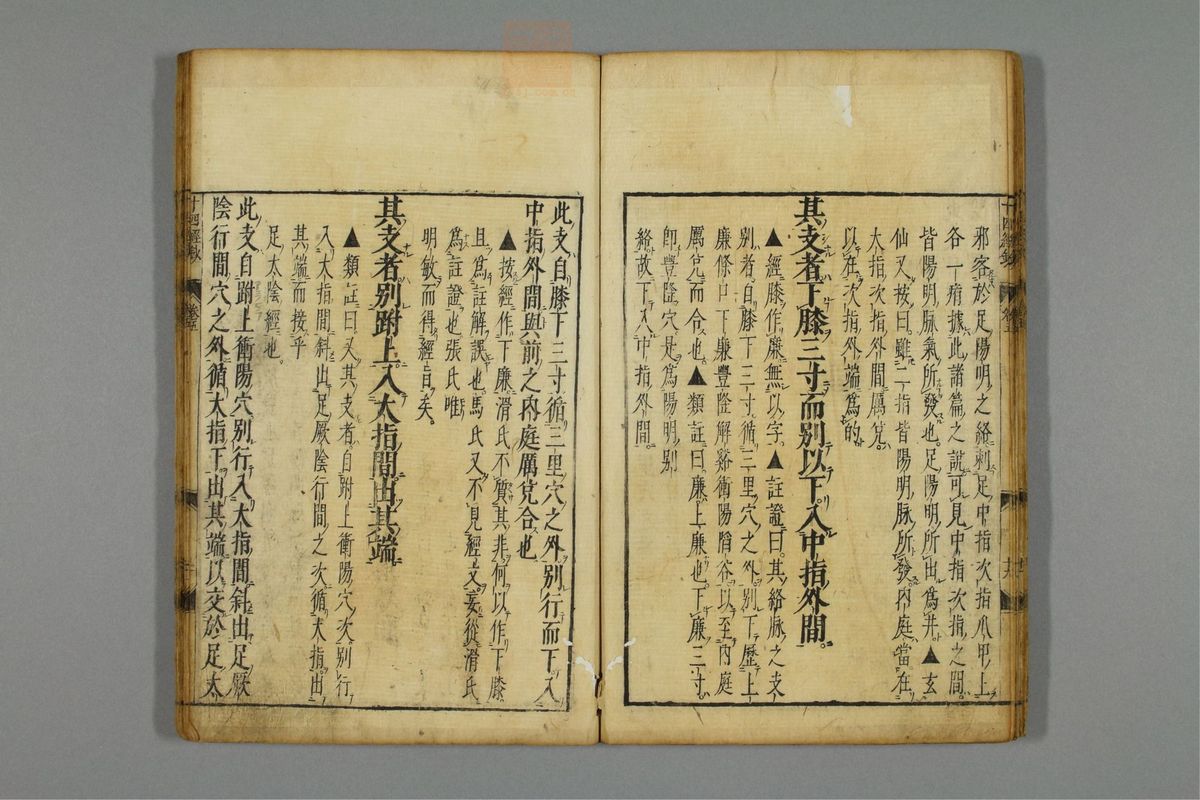 邪客於足陽明之經刺足中指次指爪甲上
各一痏據此諸篇之說可見中指次指之間
皆陽明脉氣所發也足陽明所出爲井▲玄
仙又按曰雖二指皆陽明脉所發内庭當在
大指次指外間厲兌
以在次指外端爲的
其支者下膝三寸而別以下入中指外間
▲經膝作廉無以字▲註證曰其絡脉之支
別者自膝下三寸循三里穴之外別下歷上
廉條口下廉豐隆解谿衝陽陷谷以至内庭
厲兌而合也▲類註曰廉上廉也下廉三寸
即豐隆穴是爲陽明別
絡故下入中指外間
此支自膝下三寸循三里穴之外別行而下入
中指外間與前之内庭厲兌合也
▲按經作下廉滑氏不質其非何以作下膝
且爲註解誤也馬氏又不見經文妄從滑氏
爲註證也張氏唯
明敏而得經旨矣
其支者別跗上入大指間出其端
▲類註曰又其支者自跗上衝陽穴次別行
入大指間斜出足厥陰行間之次循大指出
其端而接乎
足太陰經也
此支自跗上衝陽穴別行入大指間斜出足厥
陰行間穴之外循大指下出其端以交於足太